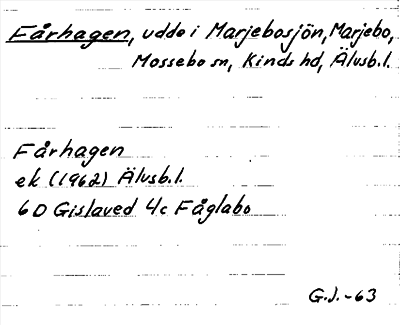 Fårhagen, udde i Marjebosjön, Marjebo,
Mossebo sn, Kinds hd, Älvsb.l.
Fårhagen
ek (1962) Älvsb.l.
6D Gislaved 4c Fåglabo
G.J.-63